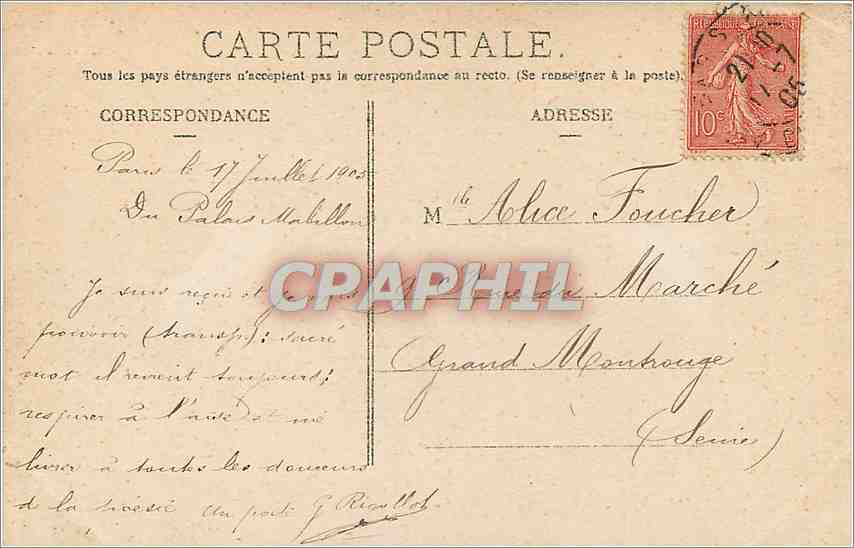 CARTE POSTALE.
Tous les pays étrangers n'acceptent pas la correspondance au recto. (Se renseigner à la poste).
CORRESPONDANCE
Paris le 17 Juillet 1905
Du Palais Mabillon
Je suis reçu et je vais
pouvoir (transp.): sacré
mot il revient toujours!
respirer à l'aise et me
livrer à toutes les douceurs
de la poésie G Rigollot
ADRESSE
Mlle Alice Foucher
Rue du Marché
Grand Montrouge
(Seine)
10c
CPAPHIL